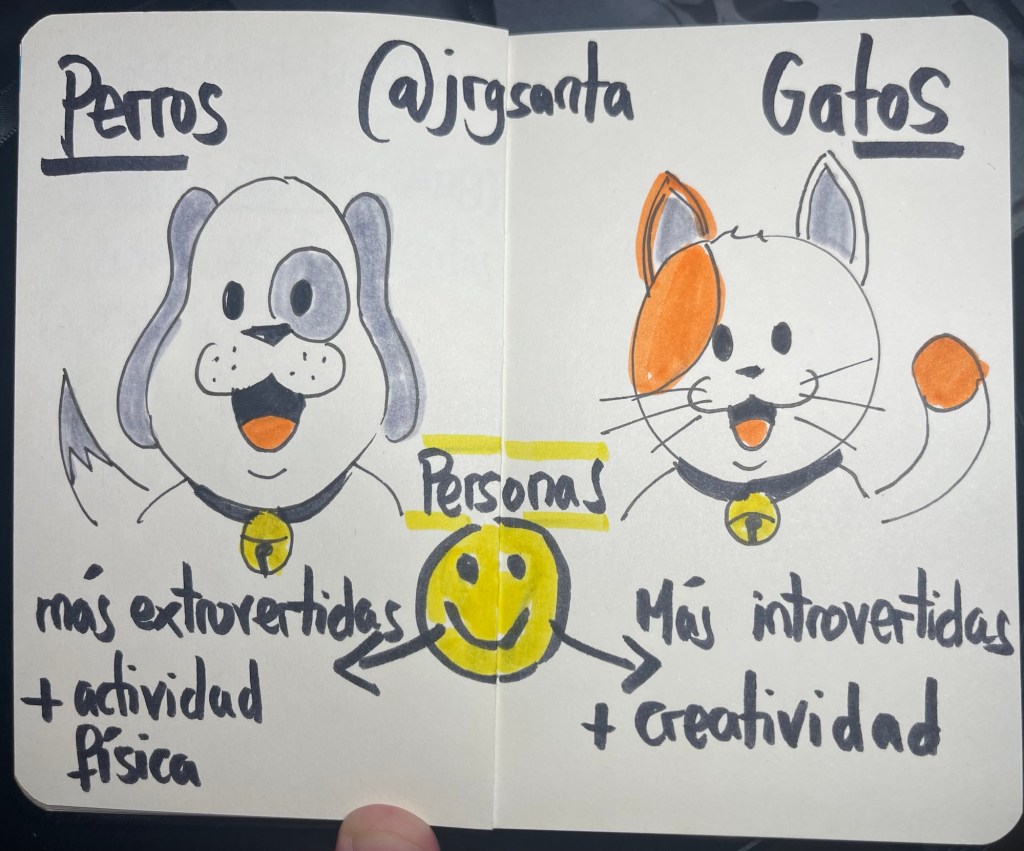 Perros
@jrgsanta
Gatos
Personas
más extrovertidas
+ actividad
física
Más introvertidas
+ creatividad